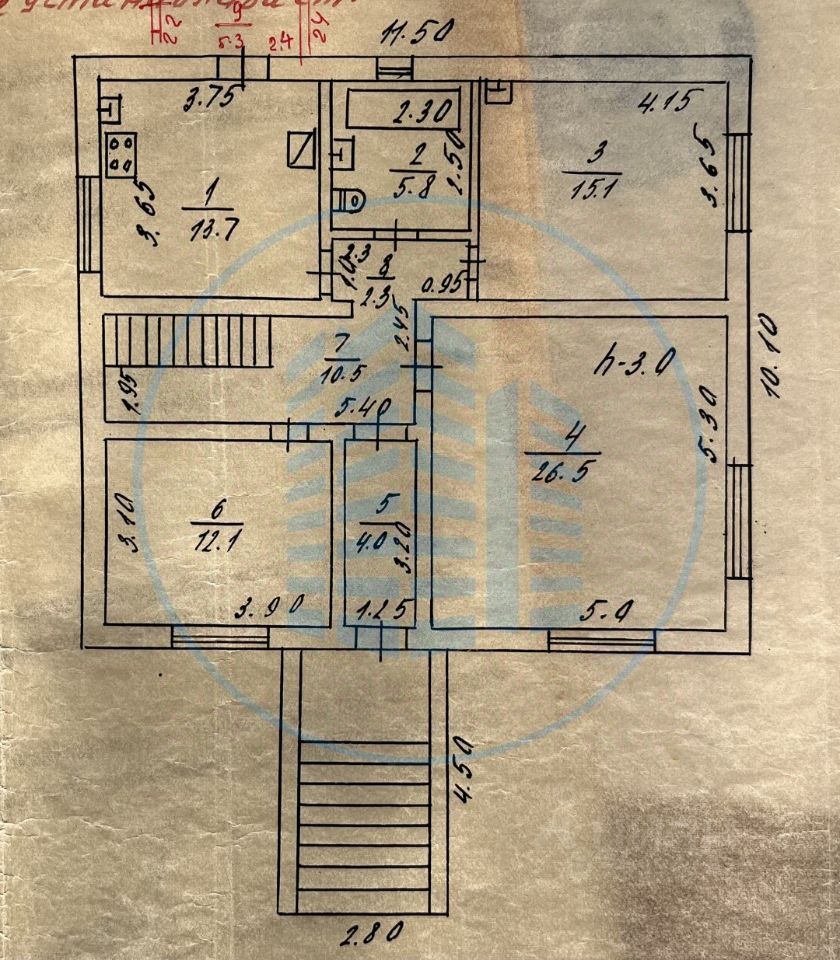 9
5.3 2.4
2.2 2.4
11.50
3.75 2.30 4.15
1
13.7
3.65
2
5.8
2.50
3
15.1
3.65
8
2.3
0.95
2.45
7
10.5
1.95
5.40
h-3.0
10.10
4
26.5
5.30
5.0
6
12.1
3.10
3.90
5
4.0
3.20
1.25
4.50
2.80